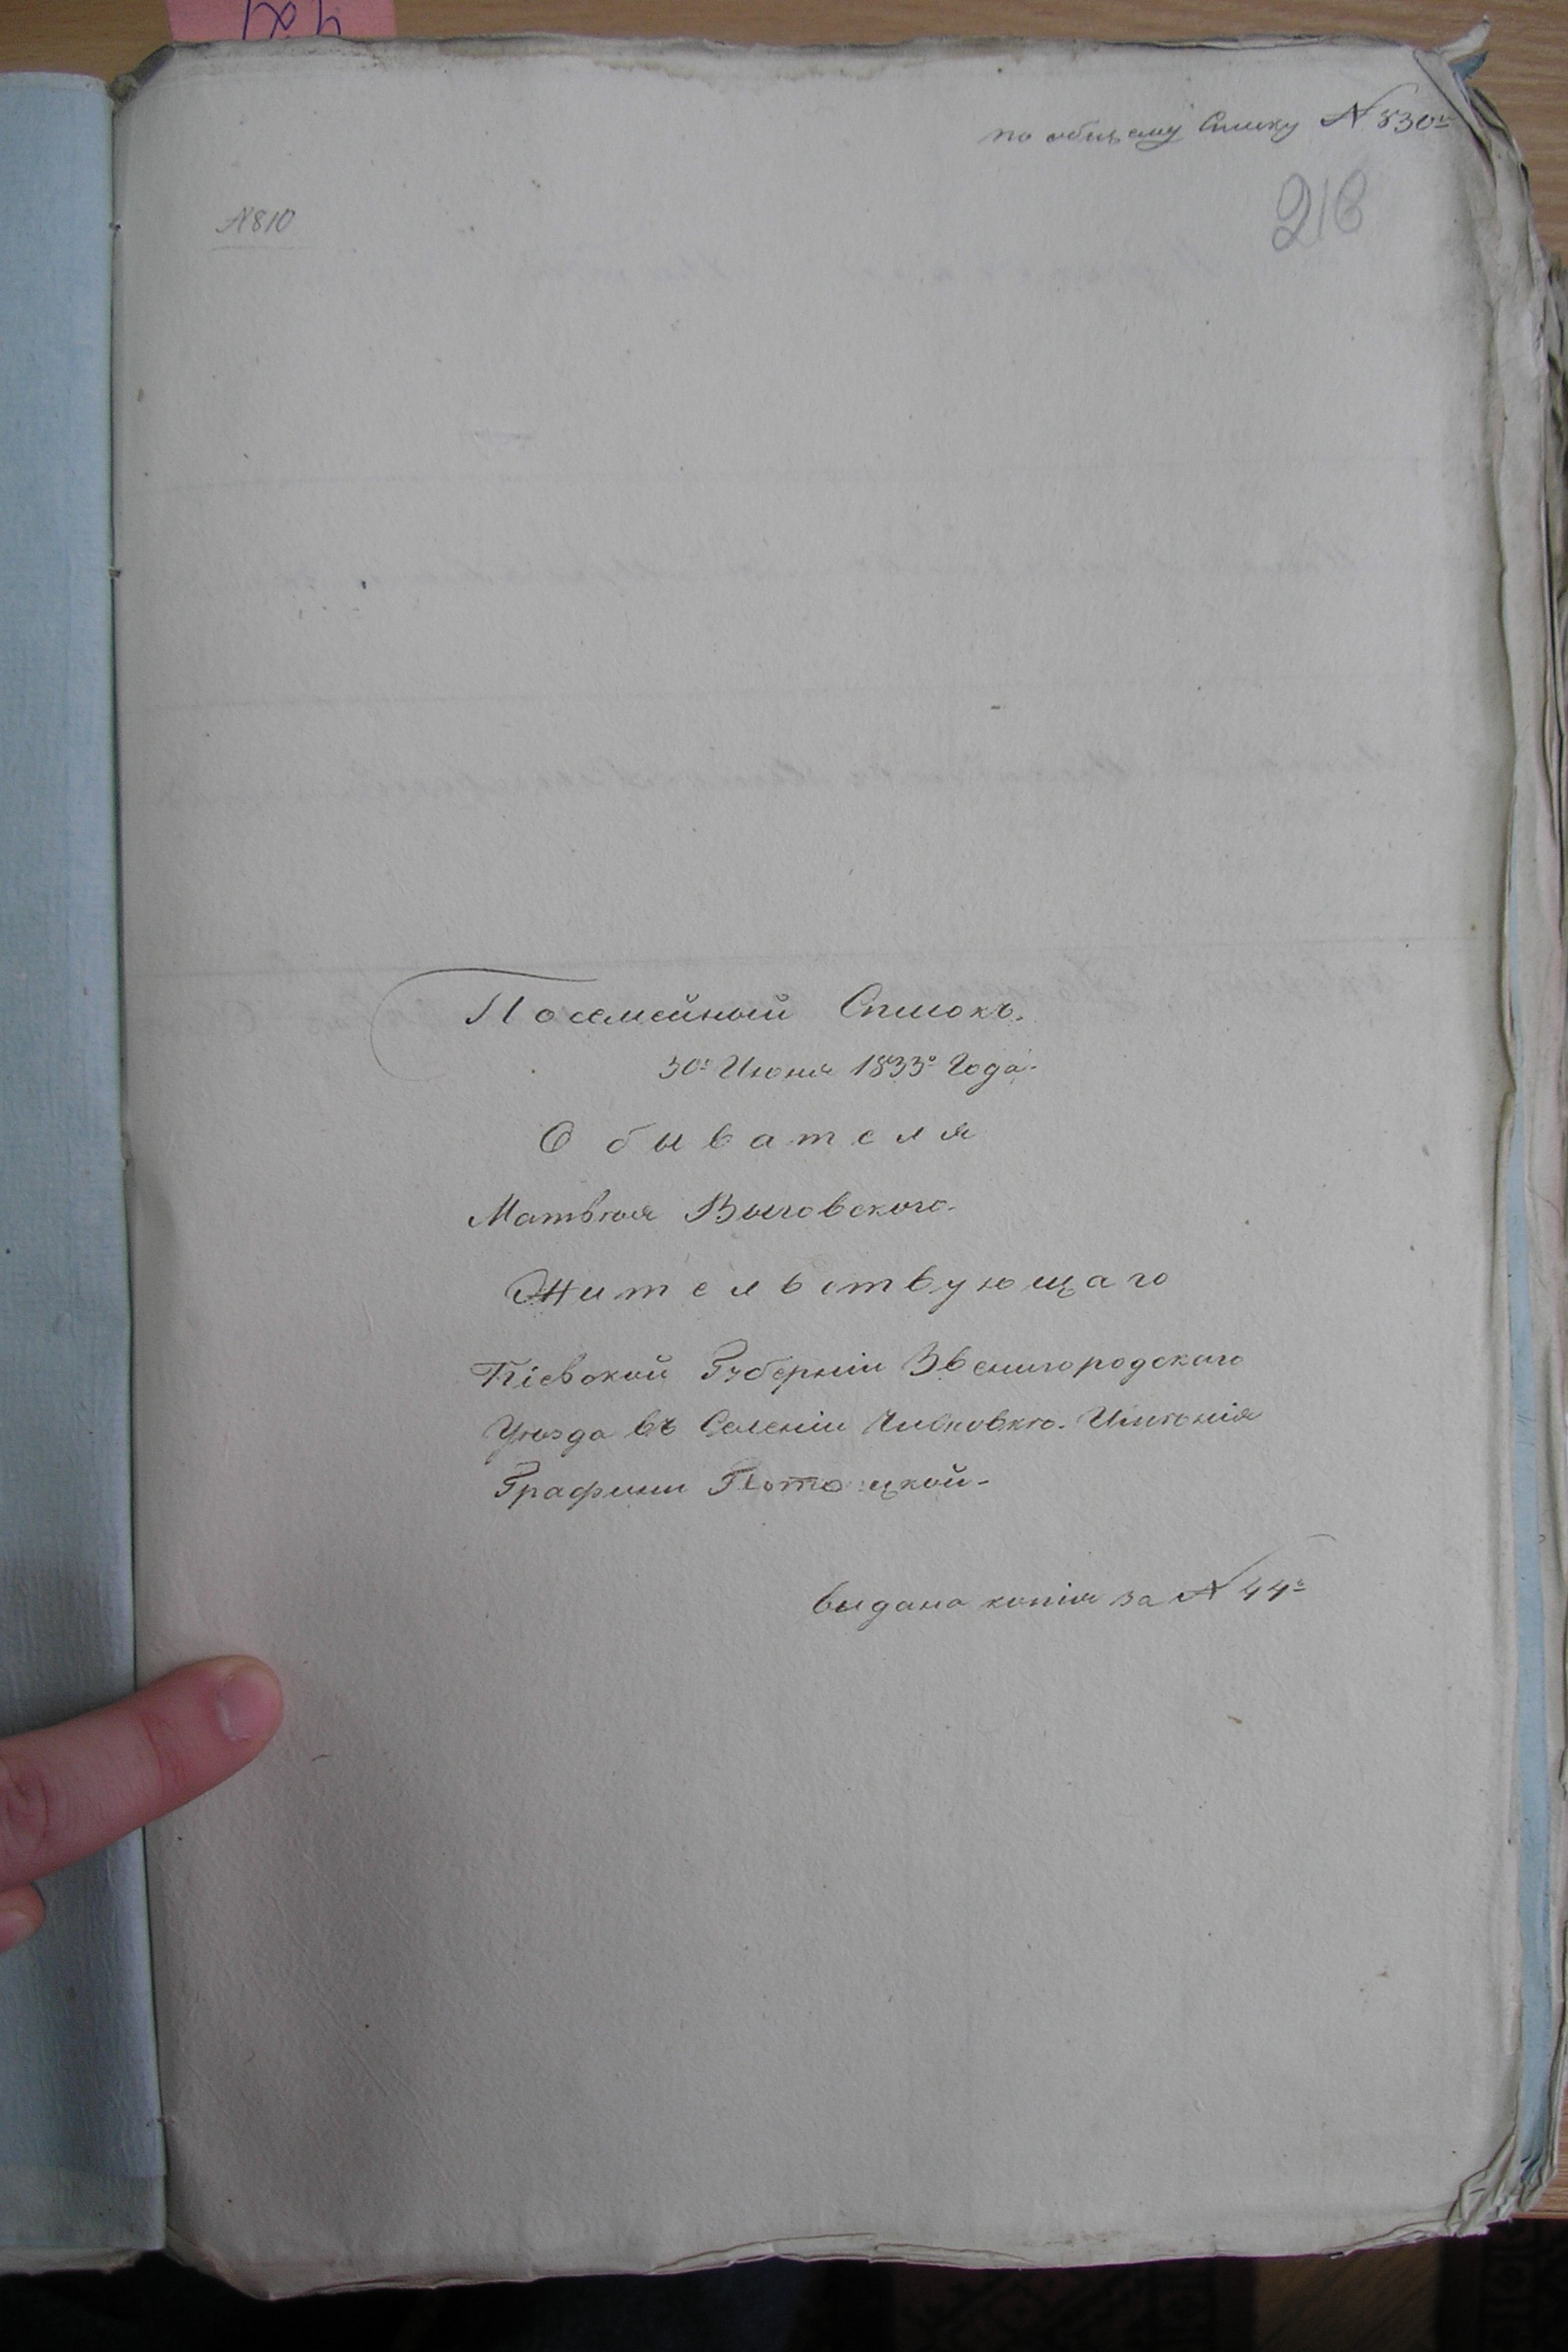 по общему Списку № 830й
218
№ 810
Посемейный Списокъ.
30го Июня 1833го Года.
Обывателя
Матвѣя Выговского.
Жительствующаго
Кіевской Губерніи Звенигородского
Уѣзда въ Селеніи Имѣнія
Графини Потоцкой.
выдана копія за № 44й